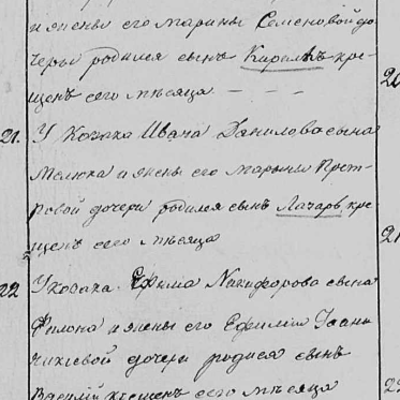 и жены его Марины Семеновой до
чери родился сынъ Кирилъ кре-
щенъ сего мѣсяца
20
21. У Козака Ивана Данилова сына
Мелюка и жены его Марыны Пет-
ровой дочери родился сынъ Лазарь кре
щенъ сего мѣсяца
21
22 У козака Ефима Никифорова сына
Филона и жены его Ефимiи Iоан
никiевой дочери родися сынъ
Василiй крещенъ сего мѣсяца
22